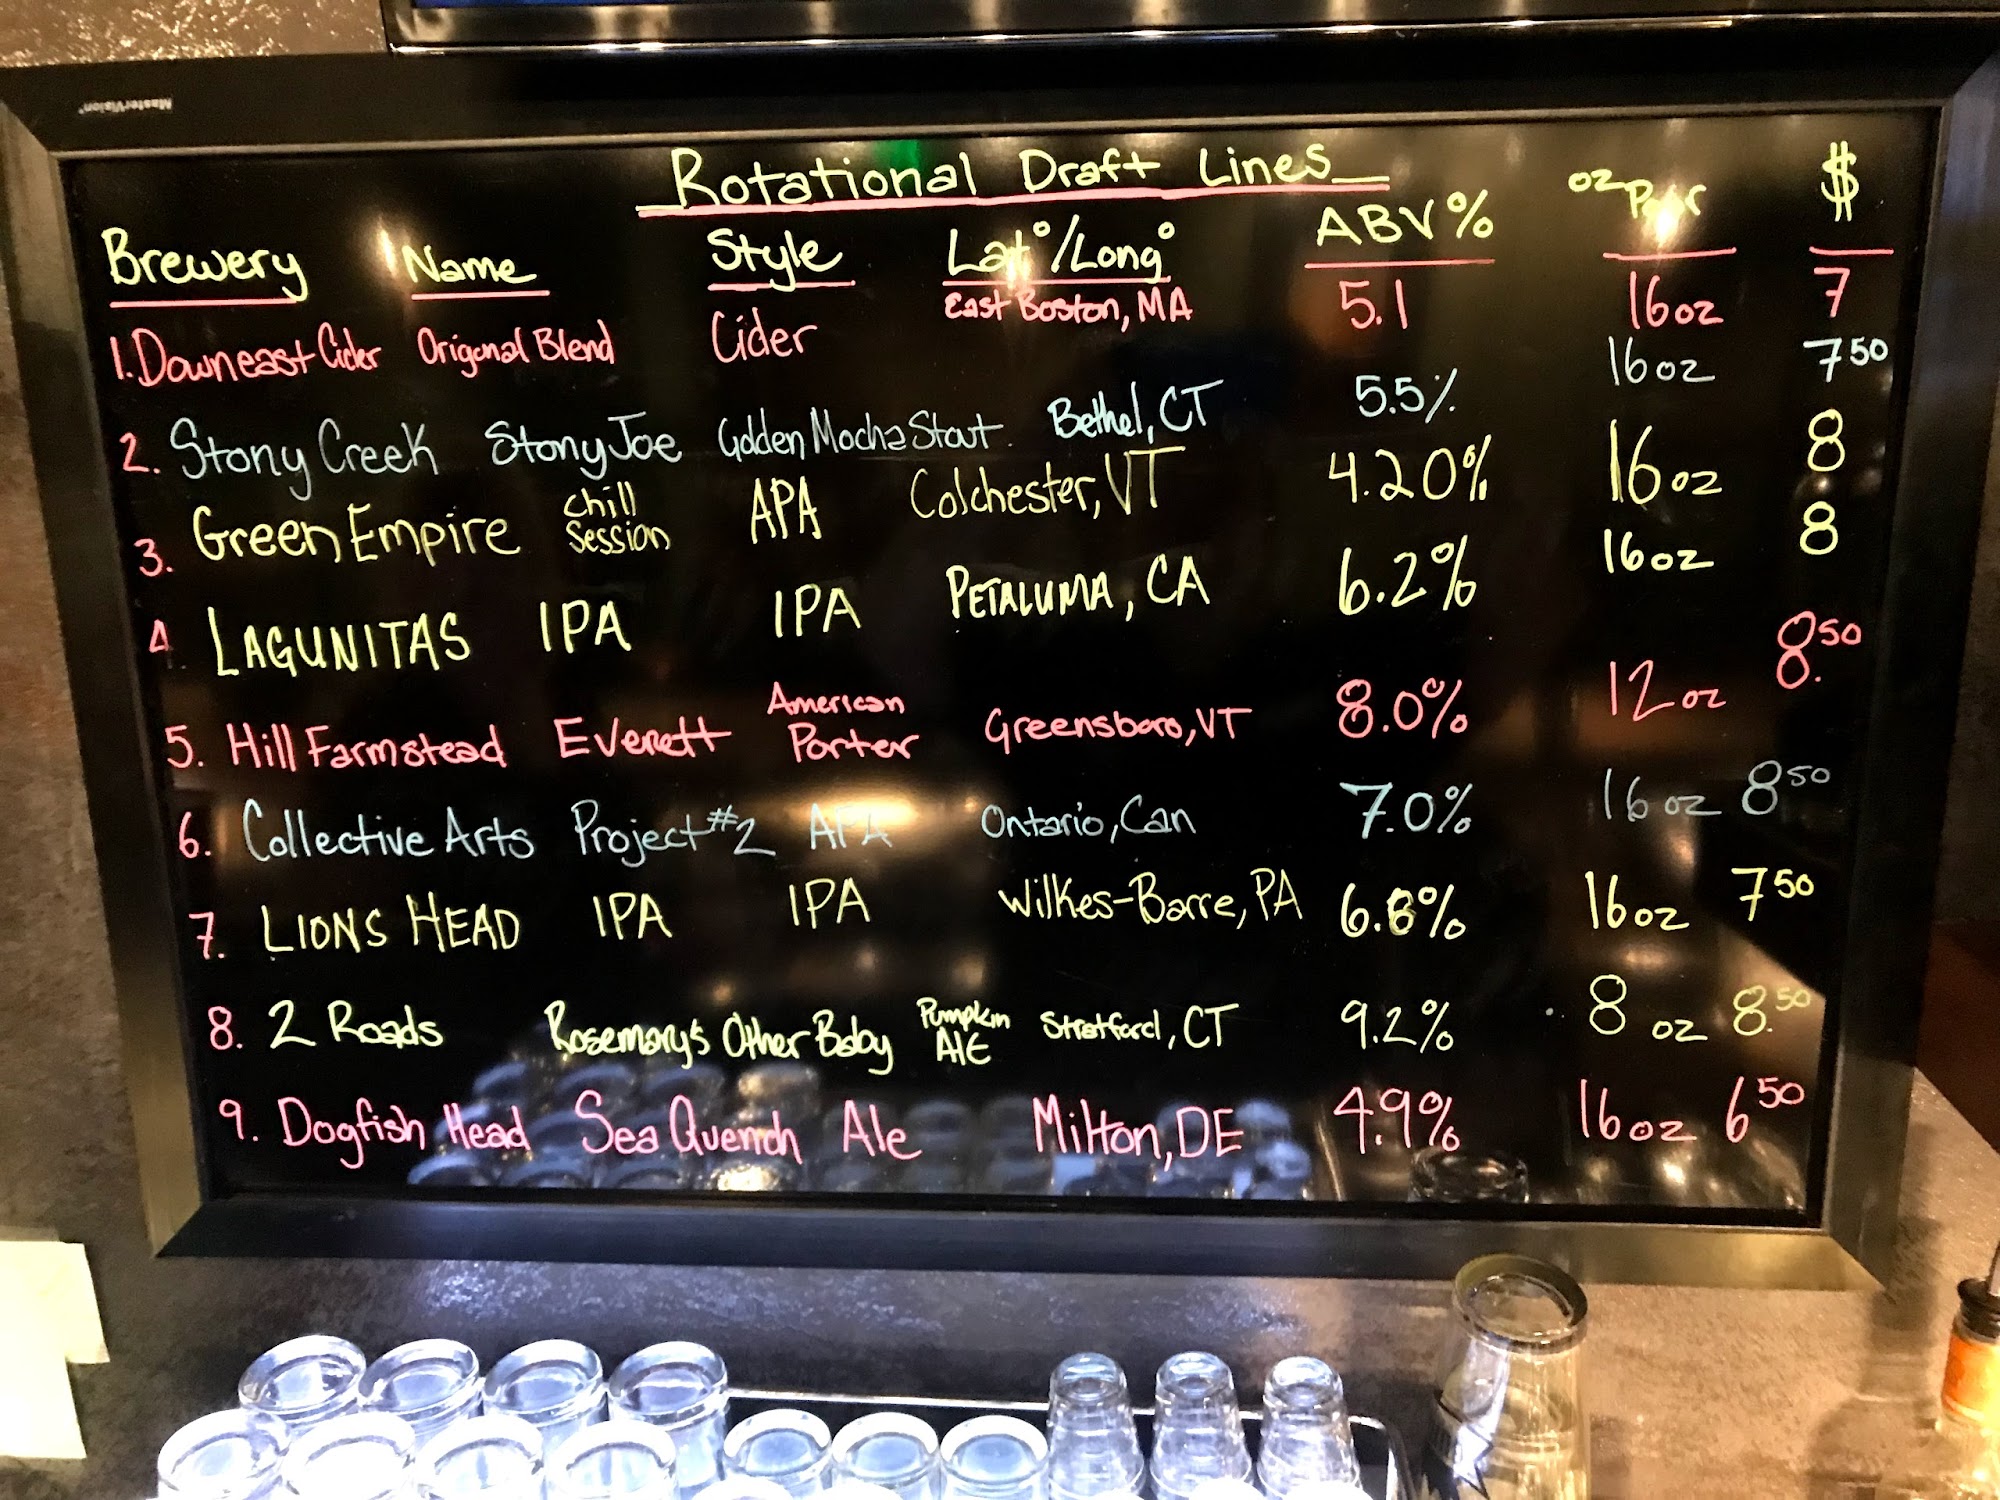 MasterVision
Rotational Draft Lines
Brewery Name Style Lat°/Long° ABV% oz Pour $
1. Downeast Cider Original Blend Cider East Boston, MA 5.1 16oz 7
2. Stony Creek Stony Joe Golden Mocha Stout. Bethel, CT 5.5% 16oz 7 50
3. Green Empire Chill Session APA Colchester, VT 4.20% 16oz 8
4. LAGUNITAS IPA IPA PETALUMA, CA 6.2% 16oz 8
5. Hill Farmstead Everett American Porter Greensboro, VT 8.0% 12oz 8.50
6. Collective Arts Project #2 APA Ontario, Can 7.0% 16oz 8 50
7. LIONS HEAD IPA IPA Wilkes-Barre, PA 6.8% 16oz 7 50
8. 2 Roads Rosemary's Other Baby Pumpkin AlE Stratford, CT 9.2% 8 oz 8.50
9. Dogfish Head Sea Quench Ale Milton, DE 4.9% 16oz 6 50